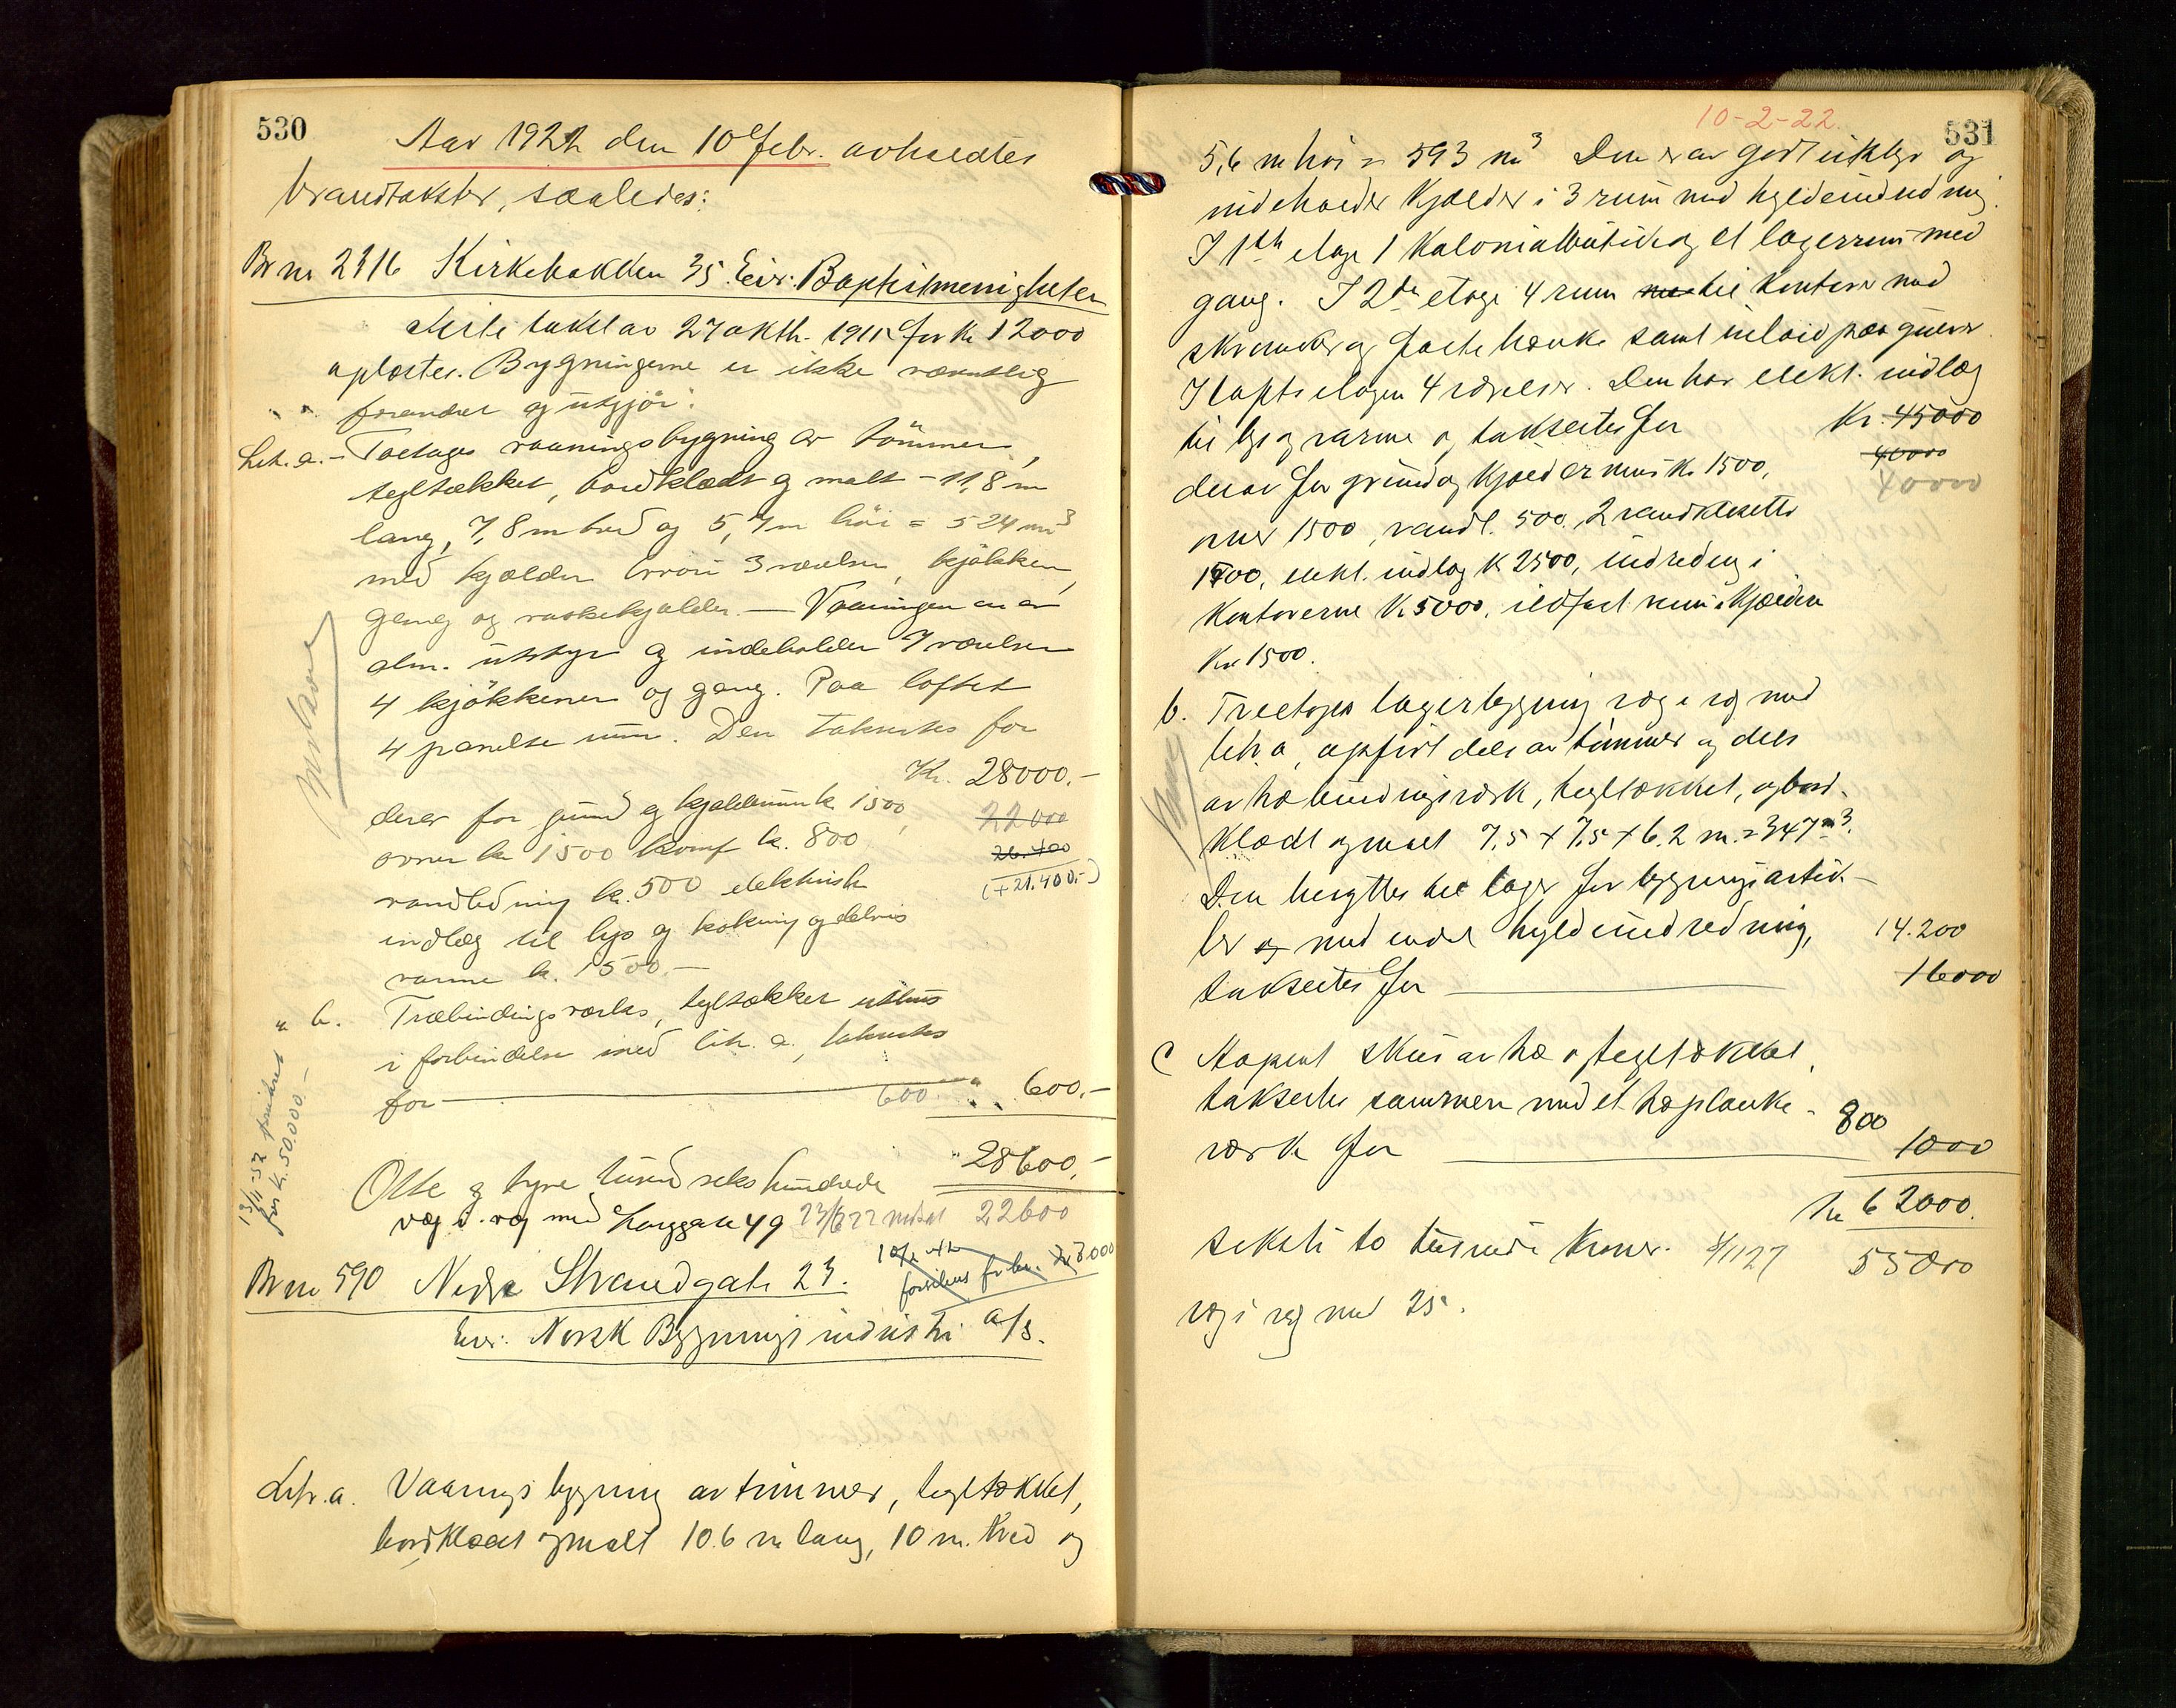 530
Aar 1922 den 10 Febr. avholdtes
brandtakster, saaledes:
Br nr 2316 Kirkebakken 35. Eier: Baptistmenigheten
Siste takst av 27 okth. 1911 for Kr 12000
oplæstes. Bygningerne er ikke væsentlig
forandret og utgjör:
Litr. a. - Toetages vaaningsbygning av tömmer,
tegltækket, bordklædt og malt - 11,8 m
lang, 7,8 m bred og 5,7 m höi = 524 m³
med kjelder hvori 3 værelser, kjökken,
gang og vaskekjelder. — Vaaningen er av
alm. utstyr og indeholder 7 værelser
4 kjökkener og gang. Paa loftet
4 panelte rum. Den takseres for
Kr. 28000.-
derav for grund og kjeldermur k. 1500, 22000
ovner kr 1500 komf k. 800 26.400
vandledning kr. 500 elektrisk (+21.400.-)
indlæg til lys og kokning og delvis
varme k. 1500.-
" b. Træbindingsværks, tegltækket uthus
i forbindelse med litr. a., takseres
for 600 " 600.-
13/11-52 forsikret
for kr. 50.000.-
" 28600.-
Otte og tyve tusend seks hundrede
væg i væg med Langgate 49 23/6 22 nedsat 22600
Br nr 590 Nedre Strandgate 23.
Eier: Norsk Bygningsindustri a/s.
Litr. a. Vaanings bygning av tømmer, tegltækket,
bordklædt og malt 10.6 m lang, 10 m. bred og
10-2-22.
531
5,6 m høi = 593 m³ Den er av godt utstyr og
indeholder Kjælder i 3 rum med hyldeindredning.
I 1ste etage 1 Kolonialbutik og et lagerrum med
gang. I 2de etage 4 rum til Kontorer med
skranker og faste bænke samt inlaid paa gulver
I loftsetagen 4 værelser. Den har elekt. indlæg
til lys og varme og takseres for Kr. 45000
derav for grund og Kjældermur Kr. 1500, 40000
40000
ovner 1500, vandl. 500. 2 vandklosetter
1500, elekt. indlæg K 2500, indredning i
Kontorerne K. 5000. ildfast rum i Kjælderen
Kr 1500.
b. Treetages lagerbygning væg i væg med
litr. a, opført dels av tømmer og dels
av træbindingsværk, tegltækket, og bord-
klædt og malt 7,5 + 7,5 + 6.2 m. = 347 m³.
Den benyttes til lager for bygningsartik-
ler og med endel hyldeindredning, 14.200
takseres for 16000
c Aapent skur av træ og tegltækket,
takseres sammen med et træplanke- 800
værk for 1000
Kr 62000.
seksti to tusinde Kroner. 4/11 27 55000
væg i væg med 25.